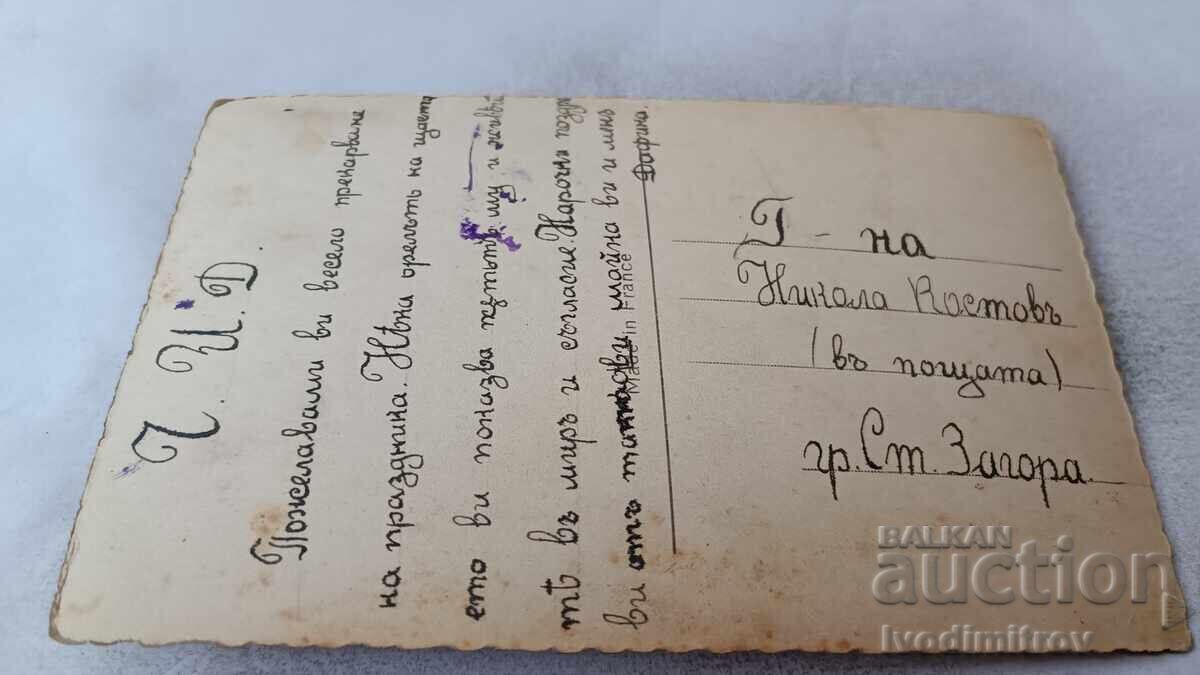 Ч. И. Д.
Пожелавами ви весело прекарване
на праздника. Нѣка орелътъ на щаст
ето ви показва пѫтьтъ му и живѣй
тѣ въ миръ и съгласие. Нарочни поздр
ви отъ майна ви и менъ
Дафина.
Made in France
Г-на
Никола Костовъ
(въ пощата)
гр. Ст. Загора.
BALKAN
auction
Ivodimitrov